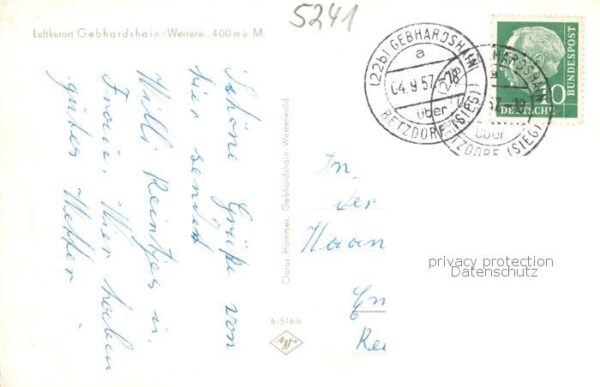 5241
Luftkurort Gebhardshain/Westerw., 400 m ü. M.
(22b) GEBHARDSHAIN
a
04.9.57.-18
über
BETZDORF (SIEG)
DEUTSCHE
BUNDESPOST
10
Schöne Grüße von
hier sendet
Willi Reintjes u.
Frau. Hier haben
gutes Wetter
Clarus Hammer, Gebhardshain Westerwald
An
der
Haan
privacy protection
Datenschutz
Agfa